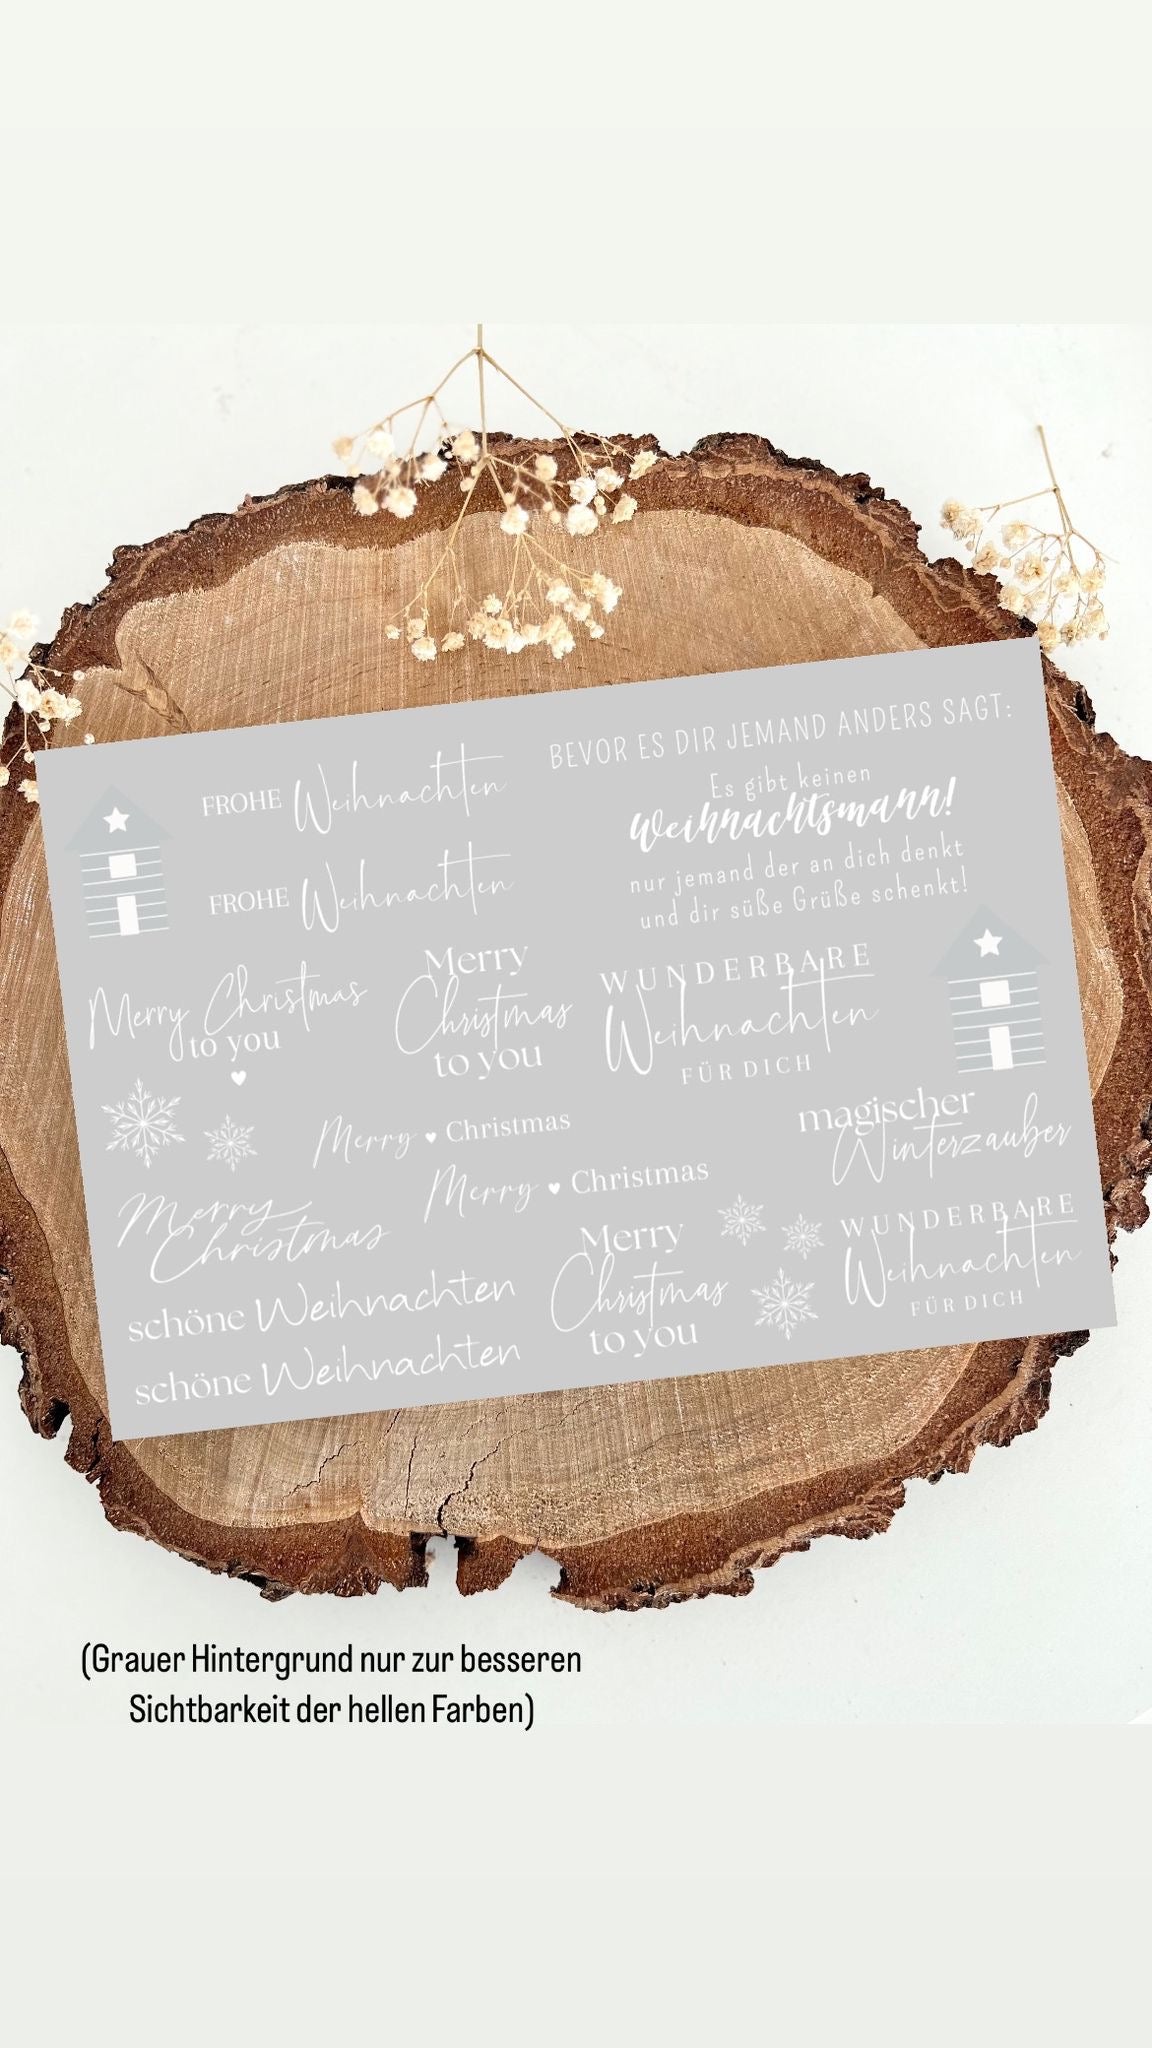 FROHE Weihnachten
FROHE Weihnachten
BEVOR ES DIR JEMAND ANDERS SAGT:
Es gibt keinen
Weihnachtsmann!
nur jemand der an dich denkt
und dir süße Grüße schenkt!
Merry Christmas
to you
Merry
Christmas
to you
WUNDERBARE
Weihnachten
FÜR DICH
Merry Christmas
Merry Christmas
magischer
Winterzauber
Merry
Christmas
schöne Weihnachten
schöne Weihnachten
Merry
Christmas
to you
WUNDERBARE
Weihnachten
FÜR DICH
(Grauer Hintergrund nur zur besseren
Sichtbarkeit der hellen Farben)